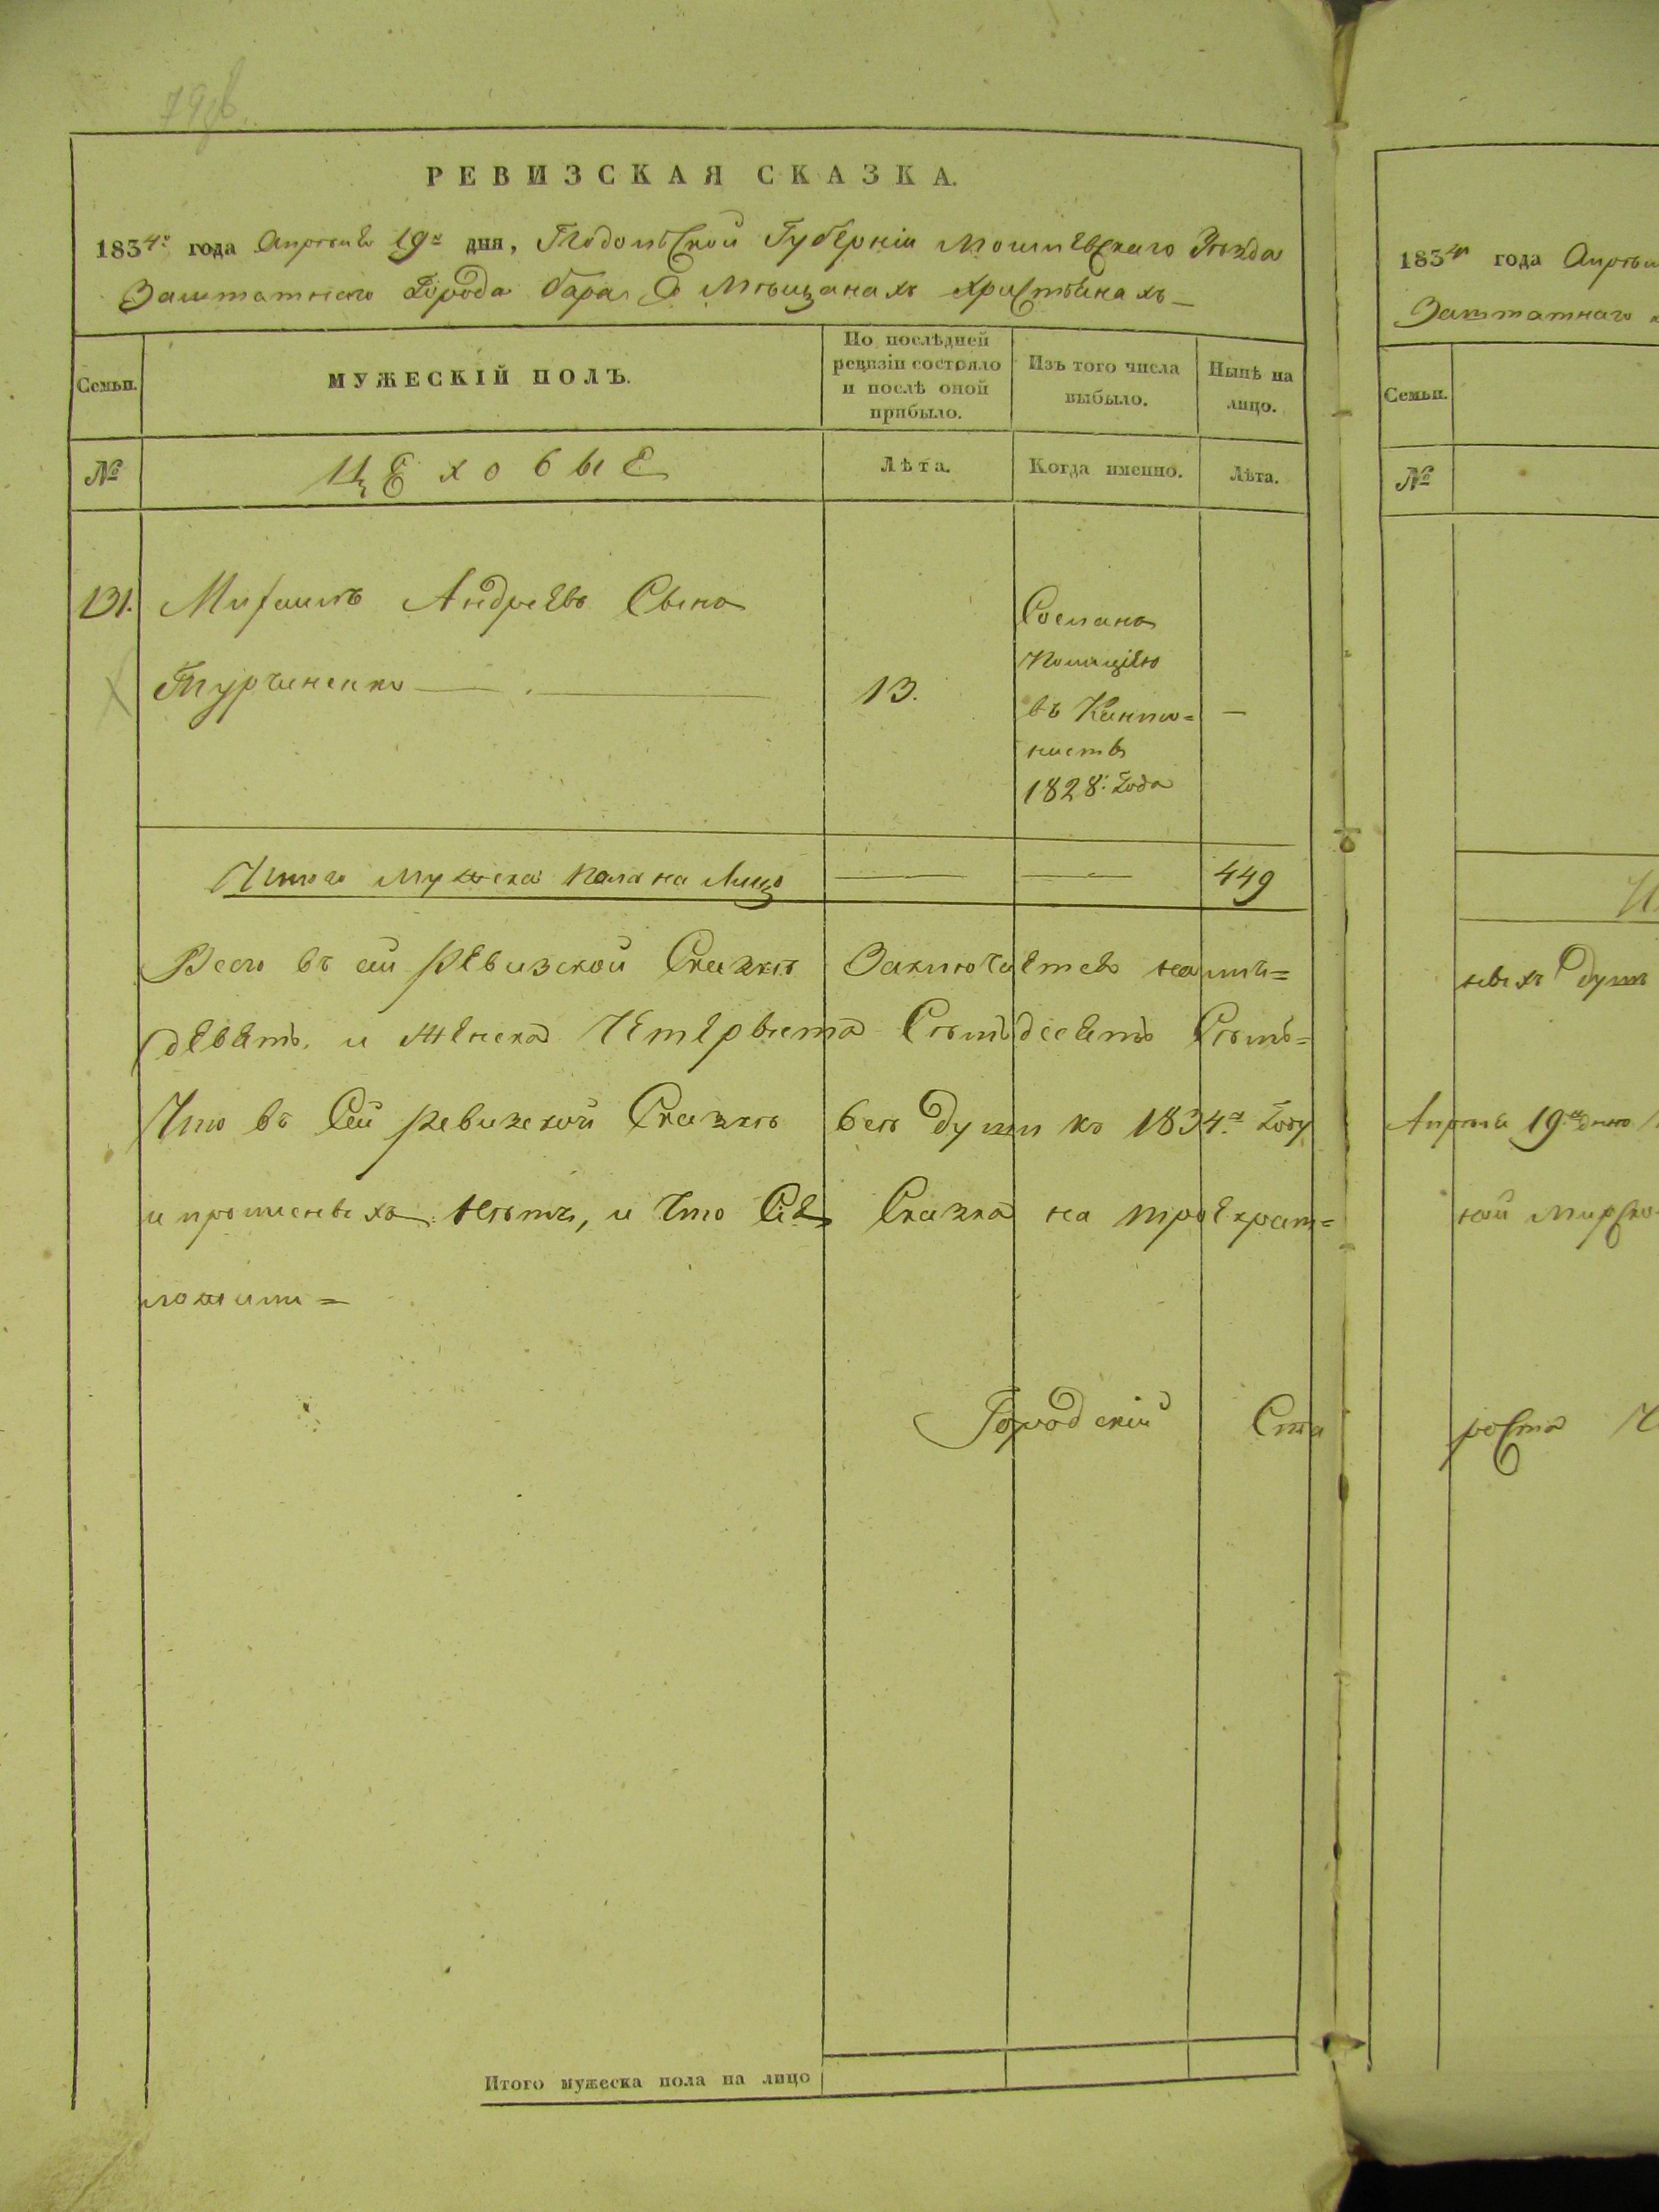 РЕВИЗСКАЯ СКАЗКА.
1834го года Апреля 19го дня, Подольской Губерніи Могилевскаго Уѣзда
Заштатнаго Города Бара О Мѣщанахъ Христіянахъ
Семьи.
МУЖЕСКІЙ ПОЛЪ.
По послѣдней ревизіи состояло и послѣ оной прибыло.
Изъ того числа выбыло.
Нынѣ на лицо.
№
ЦЕХОВЫЕ
Лѣта.
Когда именно.
Лѣта.
131. Андреевъ Сынъ
Турчиненко
13.
въ Канто=
нисты
1828: года
Итого мужеска пола на лицо 449
Всего въ сей Ревизской Сказкѣ Заключается
девять, и женска Четыреста Семьдесять Семь=
Что въ Сей Ревизской Сказкѣ всѣ души къ 1834му году
нѣтъ, и что Сія Сказка на троекрат=
Городскій Ста
Итого мужеска пола на лицо
1834го года
Заштатнаго
Семьи.
№
ныхъ душъ
Апреля 19 дню
ной
роста